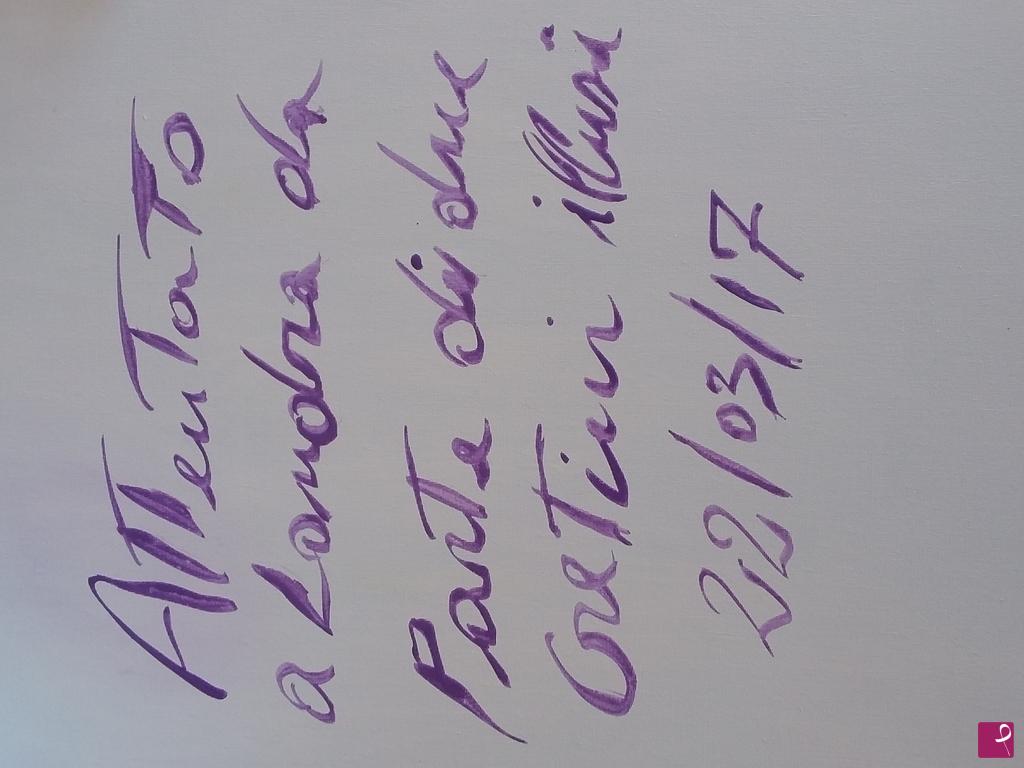 ATTenTaTo
a Londra da
Parte di due
CreTini illusi
22/03/17